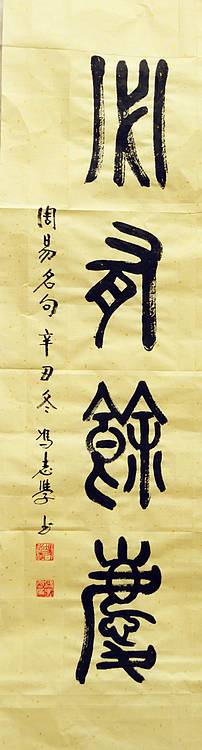 必有餘慶
周易名句辛丑冬冯志學书